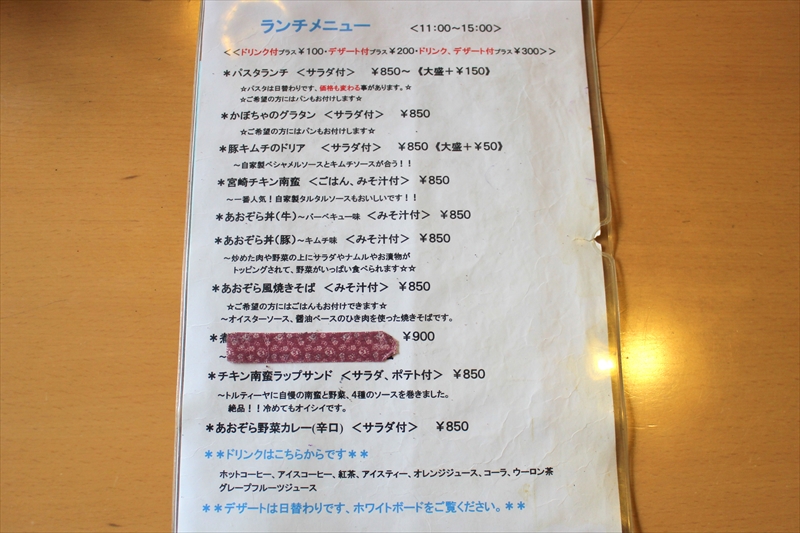 ランチメニュー <11:00~15:00>
<<ドリンク付プラス¥100・デザート付プラス¥200・ドリンク、デザート付プラス¥300>>
*パスタランチ <サラダ付> ¥850~ 《大盛+¥150》
☆パスタは日替わりです、価格も変わる事があります。☆
☆ご希望の方にはパンもお付けします☆
*かぼちゃのグラタン <サラダ付> ¥850
☆ご希望の方にはパンもお付けします☆
*豚キムチのドリア <サラダ付> ¥850 《大盛+¥50》
~自家製ベシャメルソースとキムチソースが合う!!
*宮崎チキン南蛮 <ごはん、みそ汁付> ¥850
~一番人気!自家製タルタルソースもおいしいです!!
*あおぞら丼(牛)~バーベキュー味 <みそ汁付> ¥850
*あおぞら丼(豚)~キムチ味 <みそ汁付> ¥850
~炒めた肉や野菜の上にサラダやナムルやお漬物が
トッピングされて、野菜がいっぱい食べられます☆☆
*あおぞら風焼きそば <みそ汁付> ¥850
☆ご希望の方にはごはんもお付けできます☆
~オイスターソース、醤油ベースのひき肉を使った焼きそばです。
*煮 ¥900
~
*チキン南蛮ラップサンド <サラダ、ポテト付> ¥850
~トルティーヤに自慢の南蛮と野菜、4種のソースを巻きました。
絶品!!冷めてもオイシイです。
*あおぞら野菜カレー(辛口) <サラダ付> ¥850
**ドリンクはこちらからです**
ホットコーヒー、アイスコーヒー、紅茶、アイスティー、オレンジジュース、コーラ、ウーロン茶
グレープフルーツジュース
**デザートは日替わりです、ホワイトボードをご覧ください。**